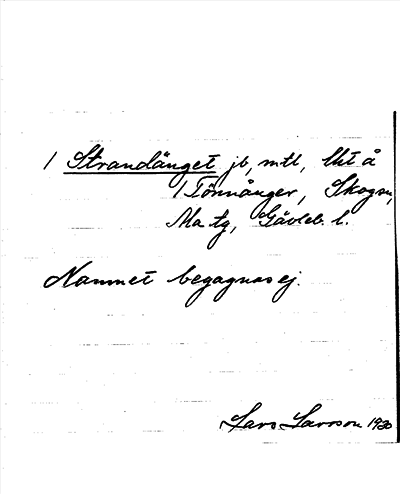 1 Strandänget jb, mtl, lht å
1 Tönnånger, Skogsn,
Ma tg, Gävleb. l.
Namnet begagnas ej.
Lars Larsson 1930